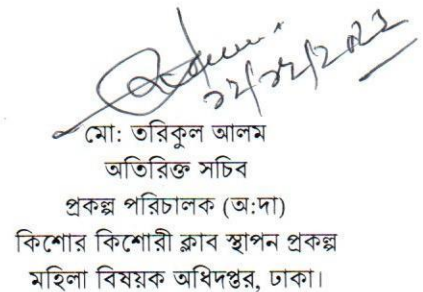 ১২/১২/২০২২
মো: তরিকুল আলম
অতিরিক্ত সচিব
প্রকল্প পরিচালক (অ:দা)
কিশোর কিশোরী ক্লাব স্থাপন প্রকল্প
মহিলা বিষয়ক অধিদপ্তর, ঢাকা।